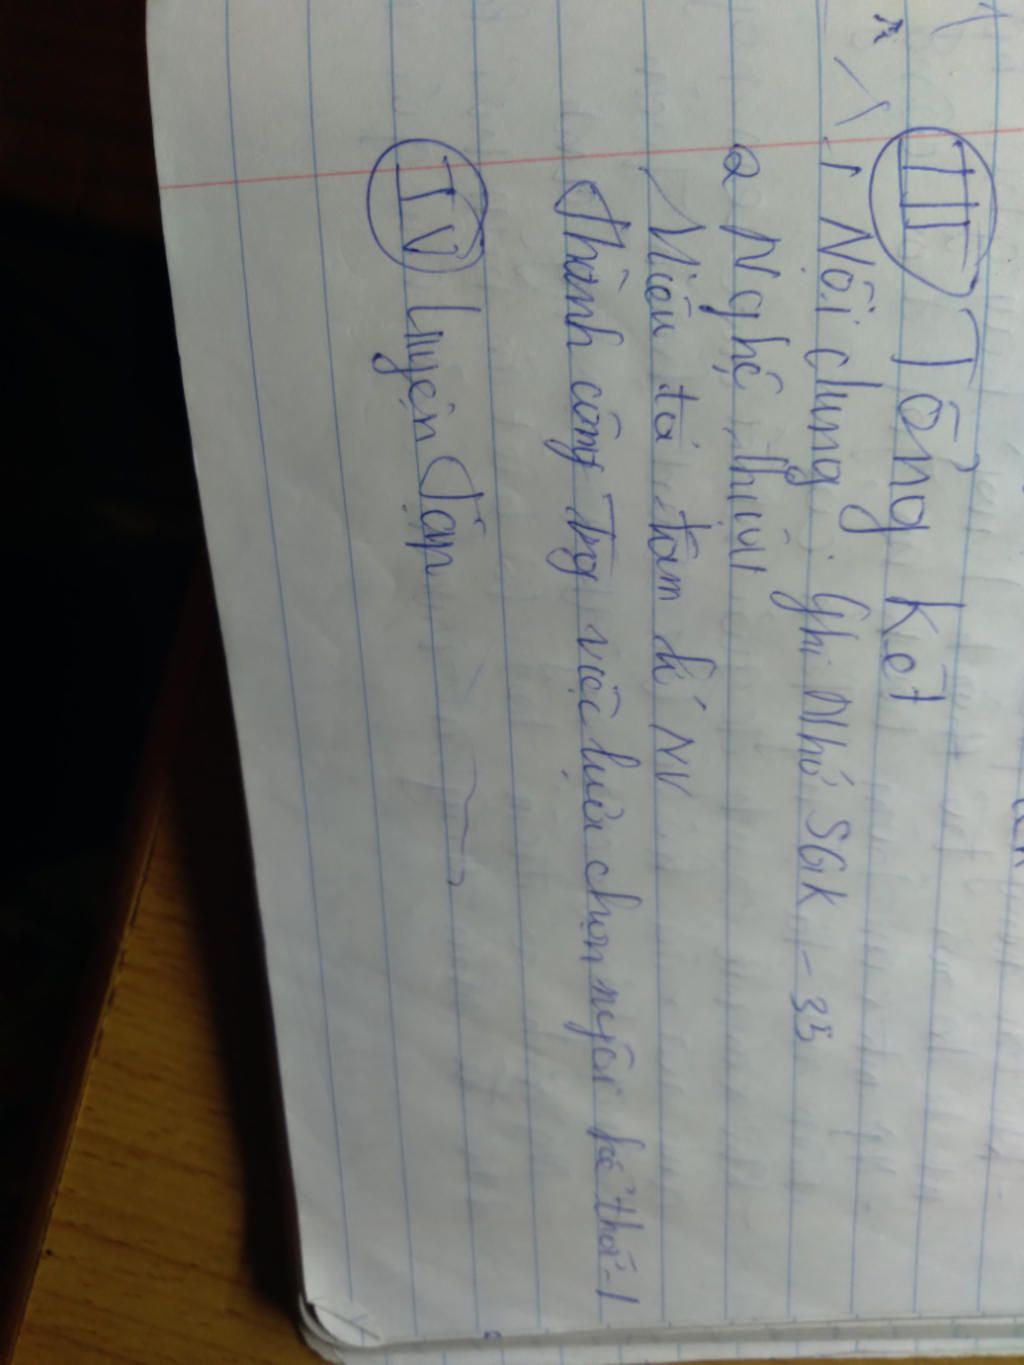 III Tổng kết
1 Nội dung : Ghi Nhớ SGK - 35
2 Nghệ thuật
Miêu tả tâm lí NV
Thành công trg việc lựa chọn ngôi kể thứ - 1
IV Luyện Tập